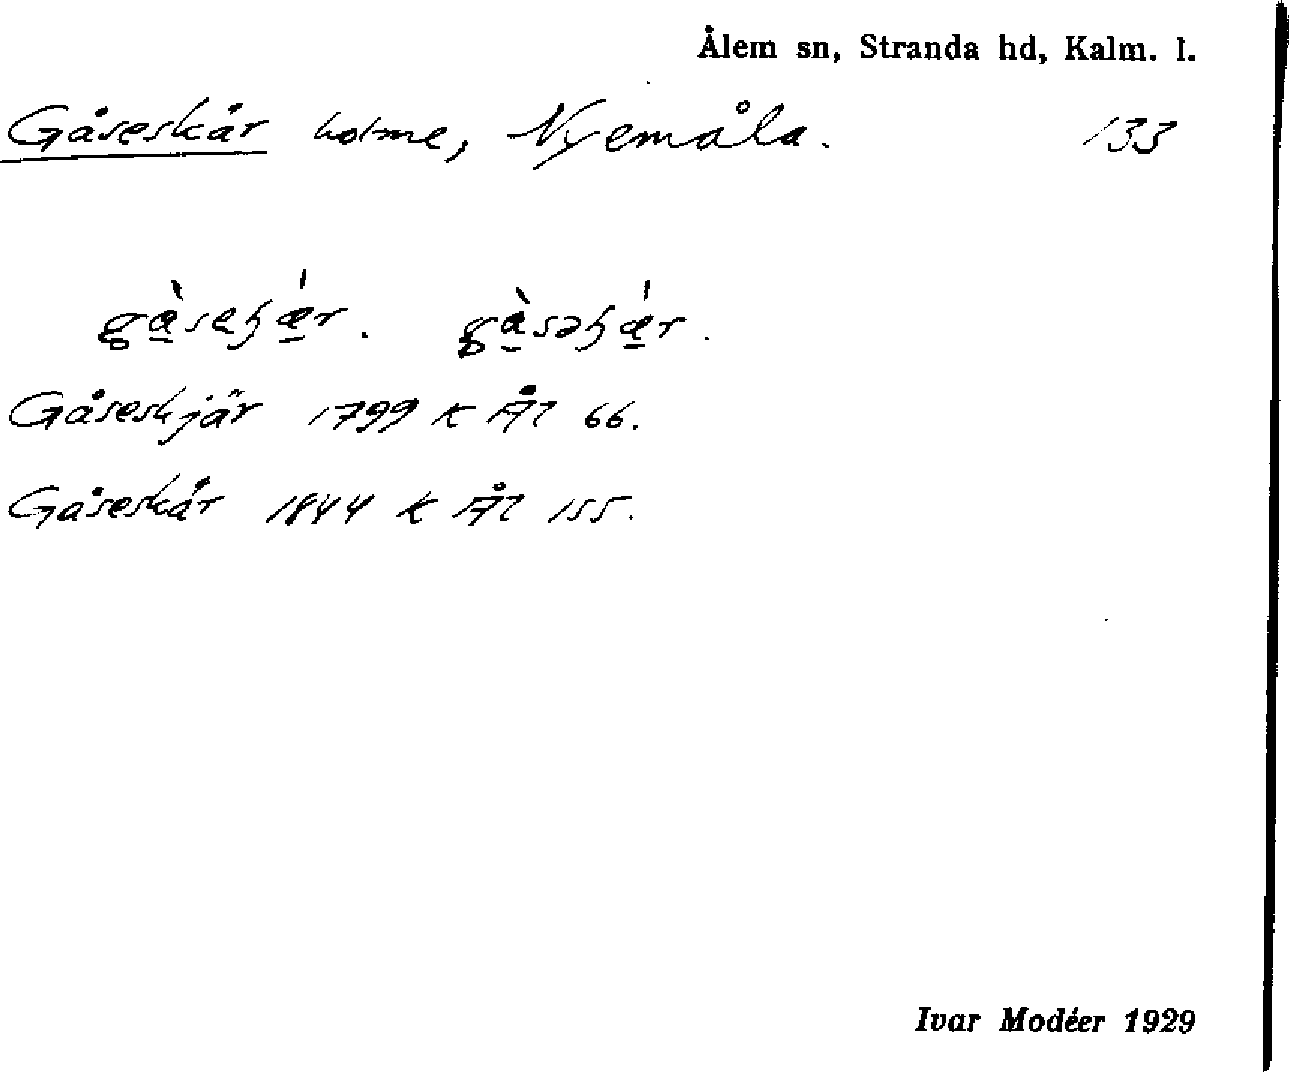 Ålem sn, Stranda hd, Kalm. l.
Gåseskär holme, Nyemåla. 133
Gåseskjär 1799 K Ål 66.
Gåseskär 1844 K Ål 155.
Ivar Modéer 1929